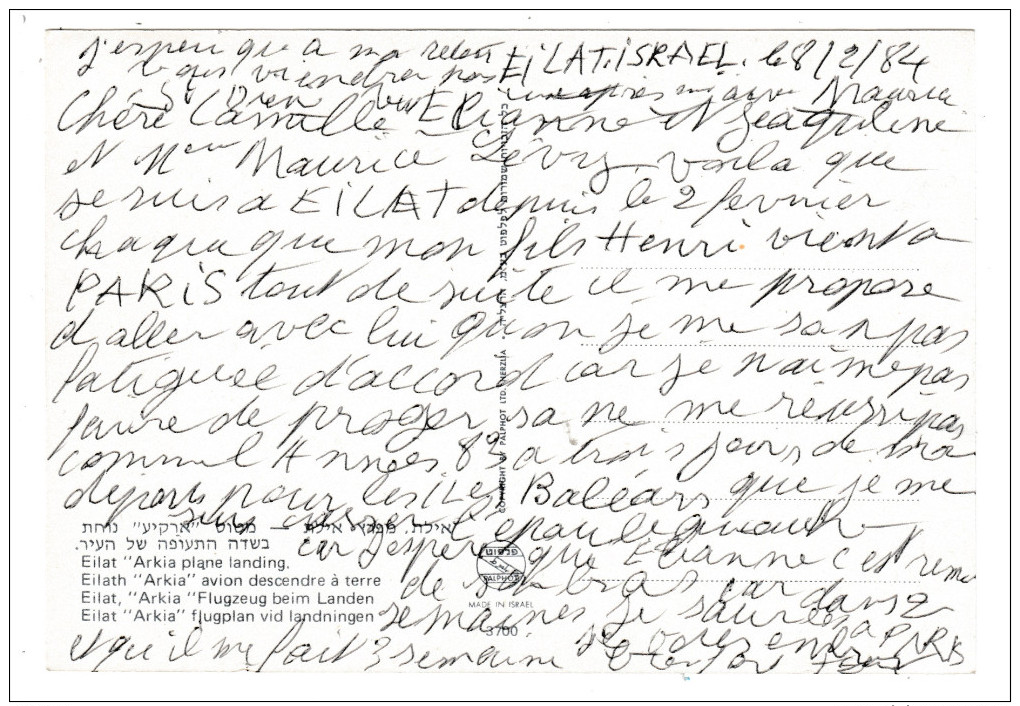 j'espere que a mon retour
EiLAT. iSRAEL. le 8/2/84
viendra pas
Maurice
Chère Camille Elianne et Jeaqueline
et Maurice Lévy. voila que
je suis a EiLAT depuis le 2 fevrier
chaque que mon fils Henri vient a
PARiS tout de suite il me propose
d aller avec lui quon je me san pas
fatiguée d'accord car je n'aime pas
faire de proger sa ne me réussi pas
comme l Années 83 a trois jours de ma
départ pour les iLes Baléars que je me
suis casser l'épaule gauche
car j'espere que Elianne c'est remi
de son bras car dans 2
semaines je saurai a PARiS
et qu il me fait 3 semaine
כל הזכויות שמורות לפלפוט בע"מ. הרצליה •
COPYRIGHT BY PALPHOT LTD. HERZLIA •
אילת. מפרץ אילת — מטוס "ארקיע" נוחת
בשדה התעופה של העיר.
Eilat "Arkia plane landing.
Eilath "Arkia" avion descendre à terre
Eilat, "Arkia "Flugzeug beim Landen
Eilat "Arkia" flugplan vid landningen
פלפוט
PALPHOT
MADE IN ISRAEL
3700